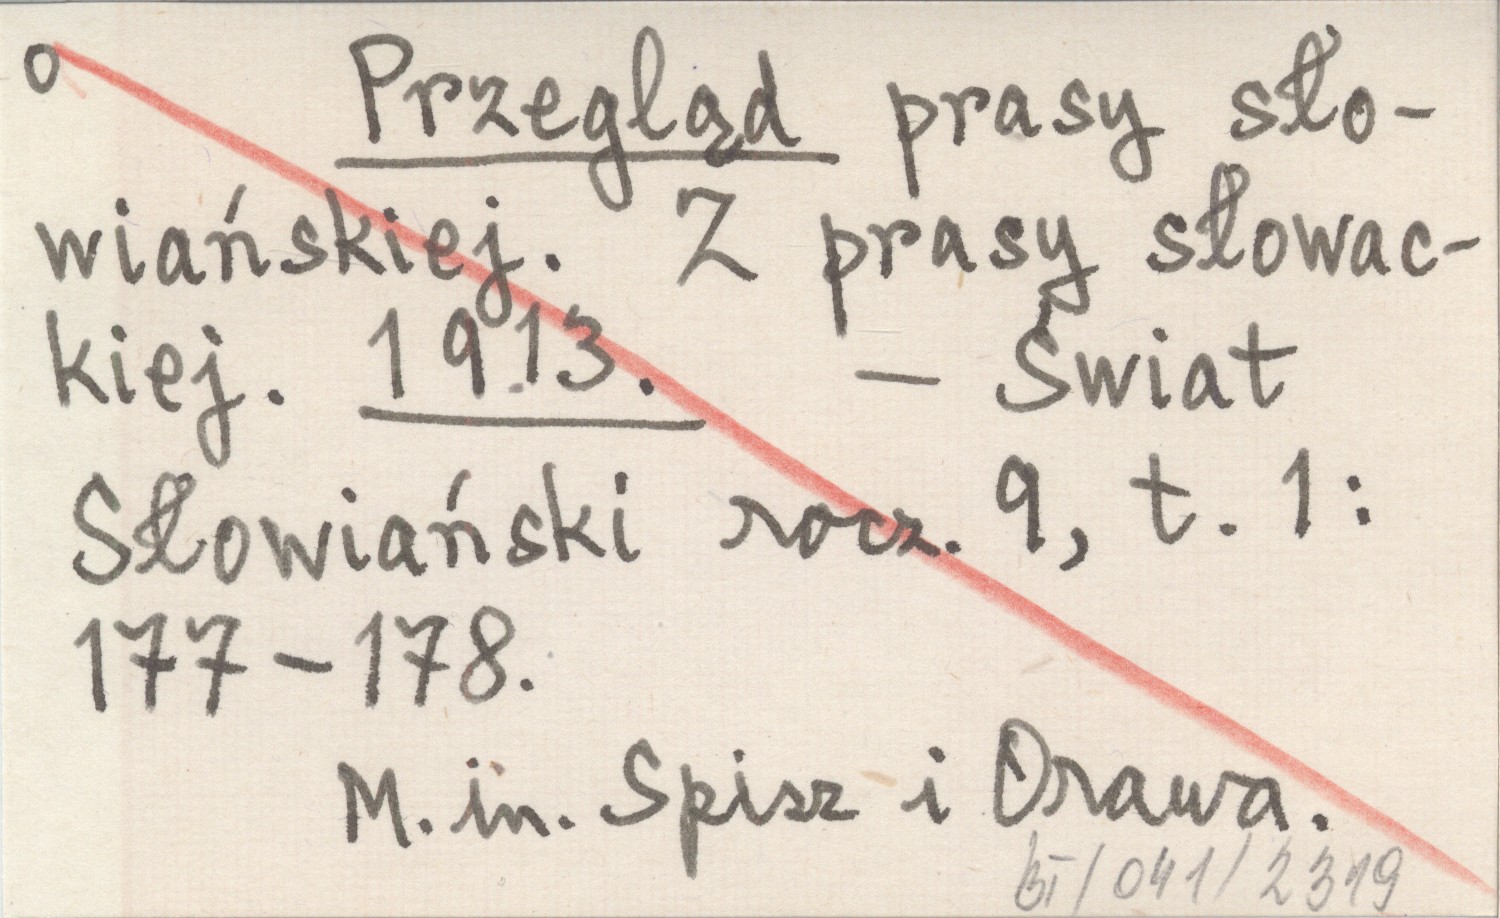 o Przegląd prasy sło-
wiańskiej. Z prasy słowac-
kiej. 1913. – Świat
Słowiański rocz. 9, t. 1:
177–178.
M. in. Spisz i Orawa.
BI/041/2319